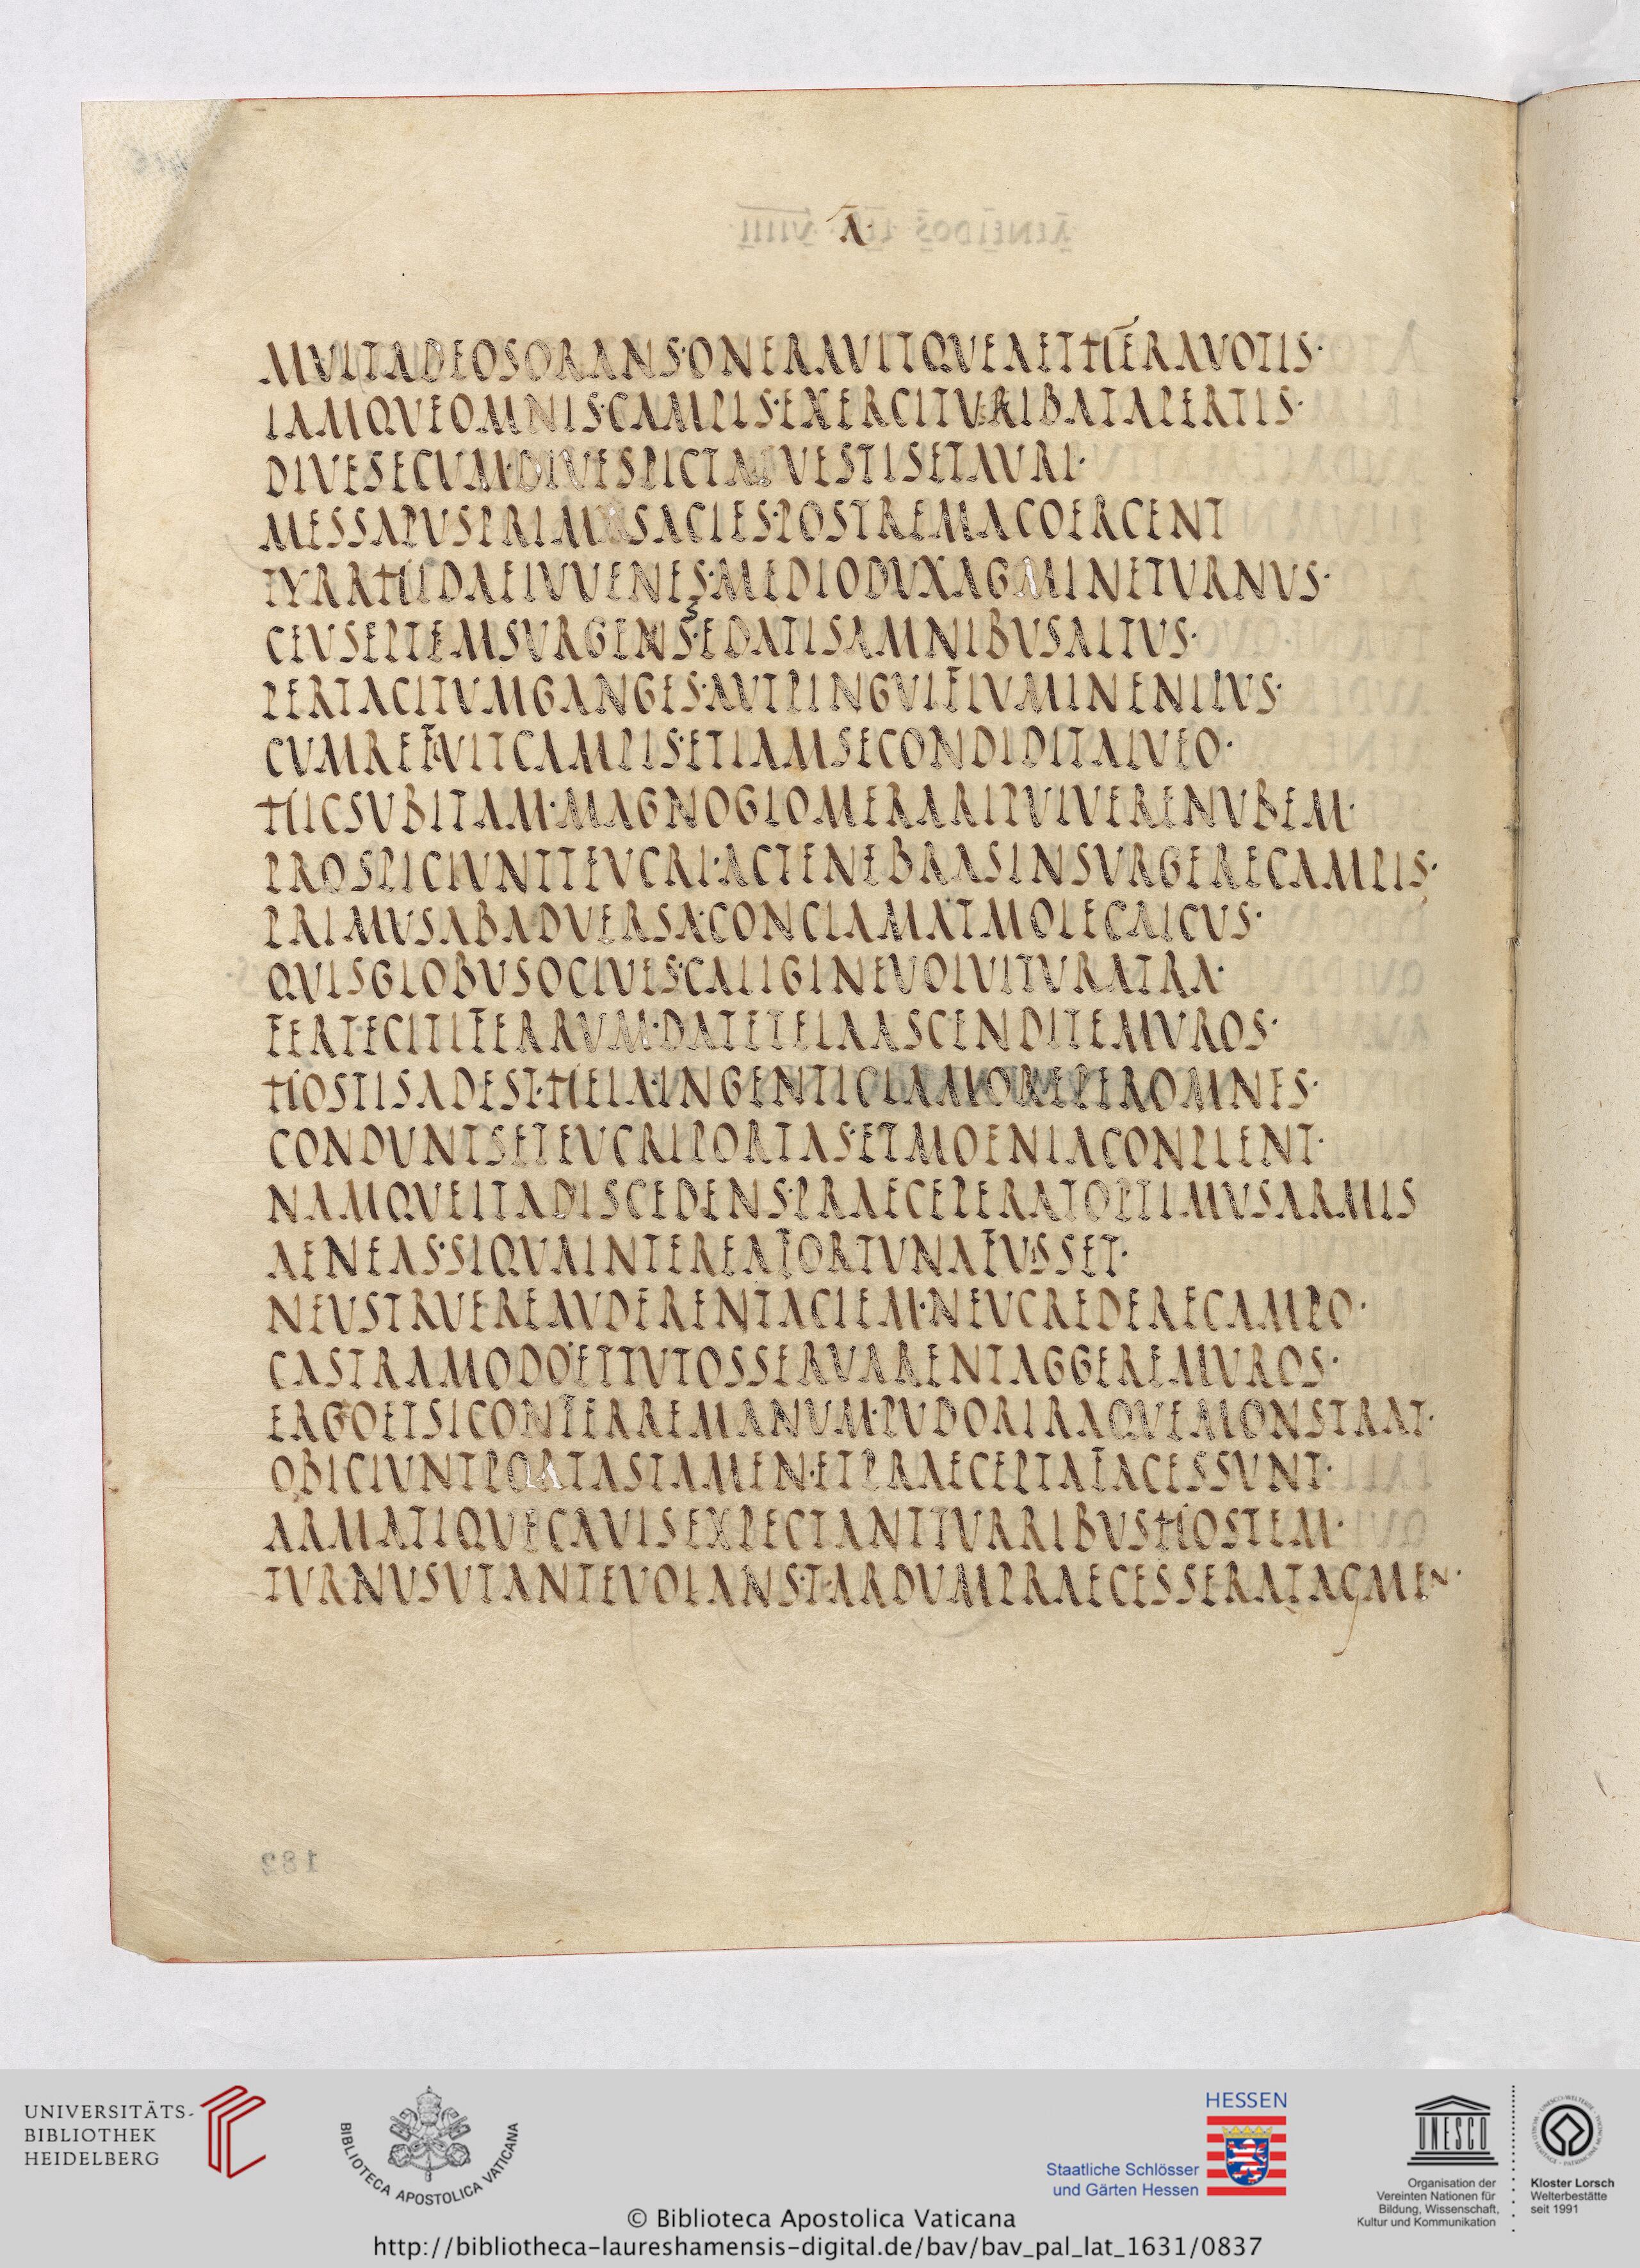 V
MVLTADEOSORANS·ONERAVITQVEAETHERAVOTIS·
IAMQVEOMNIS·CAMPIS·EXERCITVRIBATAPERTIS·
DIVESECVM·DIVESPICTAIVESTISETAVRI·
MESSAPVSPRIMASACIES·POSTREMACOERCENT
TYRRHIDAEIVVENES·MEDIODVXAGMINETVRNVS·
CEVSEPTEMSVRGENS·SEDATISAMNIBVSALTVS·
PERTACITVMGANGES·AVTPINGVIFLVMINENILVS·
CVMREFLVITCAMPIS·ETIAMSECONDIDITALVEO·
HICSVBITAM·MAGNOGLOMERARIPVLVERENVBEM·
PROSPICIVNTTEVCRI·ACTENEBRASINSVRGERECAMPIS·
PRIMVSABADVERSA·CONCLAMATMOLECAICVS·
QVISGLOBVSOCIVES·CALIGINEVOLVITVRATRA·
FERTECITIFERRVM·DATETELAASCENDITEMVROS·
HOSTISADEST·HEIA·INGENTICLAMOREPEROMNES·
CONDVNTSETEVCRIPORTAS·ETMOENIACONPLENT·
NAMQVEITADISCEDENS·PRAECEPERATOPTIMVSARMIS
AENEAS·SIQVAINTEREAFORTVNAFVSSET·
NEVSTRVEREAVDERENTACIEM·NEVCREDERECAMPO·
CASTRAMODO·ETTVTOSSERVARENTAGGEREMVROS·
ERGOETSICONFERREMANVM·PVDORIRAQVEMONSTRAT·
OBICIVNTPORTASTAMEN·ETPRAECEPTAFACESSVNT·
ARMATIQVECAVISEXPECTANTTVRRIBVSHOSTEM·
TVRNVSVTANTEVOLANS·TARDVMPRAECESSERATAGMEN·
UNIVERSITÄTS-
BIBLIOTHEK
HEIDELBERG
BIBLIOTECA APOSTOLICA VATICANA
HESSEN
Staatliche Schlösser
und Gärten Hessen
UNESCO
Organisation der
Vereinten Nationen für
Bildung, Wissenschaft,
Kultur und Kommunikation
Kloster Lorsch
Welterbestätte
seit 1991
© Biblioteca Apostolica Vaticana
http://bibliotheca-laureshamensis-digital.de/bav/bav_pal_lat_1631/0837